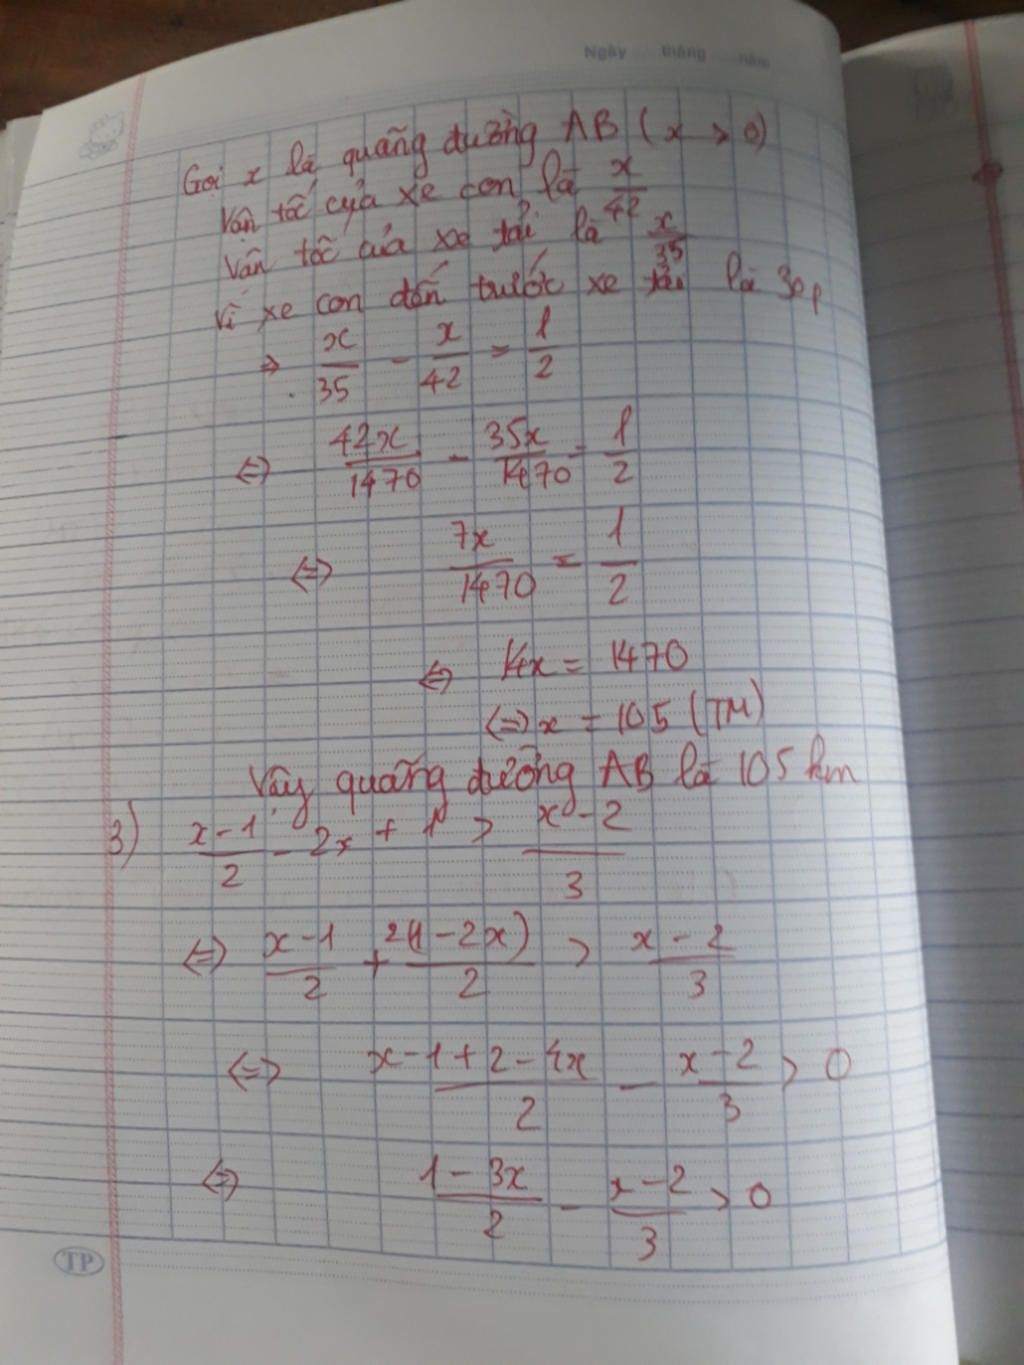 Ngày tháng năm
Gọi x là quãng đường AB ( x > 0)
Vận tốc của xe con là x/42
Vận tốc của xe tải là x/35
Vì xe con đến trước xe tải là 30p
⇒ x/35 - x/42 = 1/2
⇔ 42x/1470 - 35x/1470 = 1/2
⇔ 7x/1470 = 1/2
⇔ 14x = 1470
⇔ x = 105 (TM)
Vậy quãng đường AB là 105 km
3) x-1/2 - 2x + 1 > x-2/3
⇔ x-1/2 + 2(1-2x)/2 > x-2/3
⇔ x-1+2-4x/2 - x-2/3 > 0
⇔ 1-3x/2 - x-2/3 > 0
TP